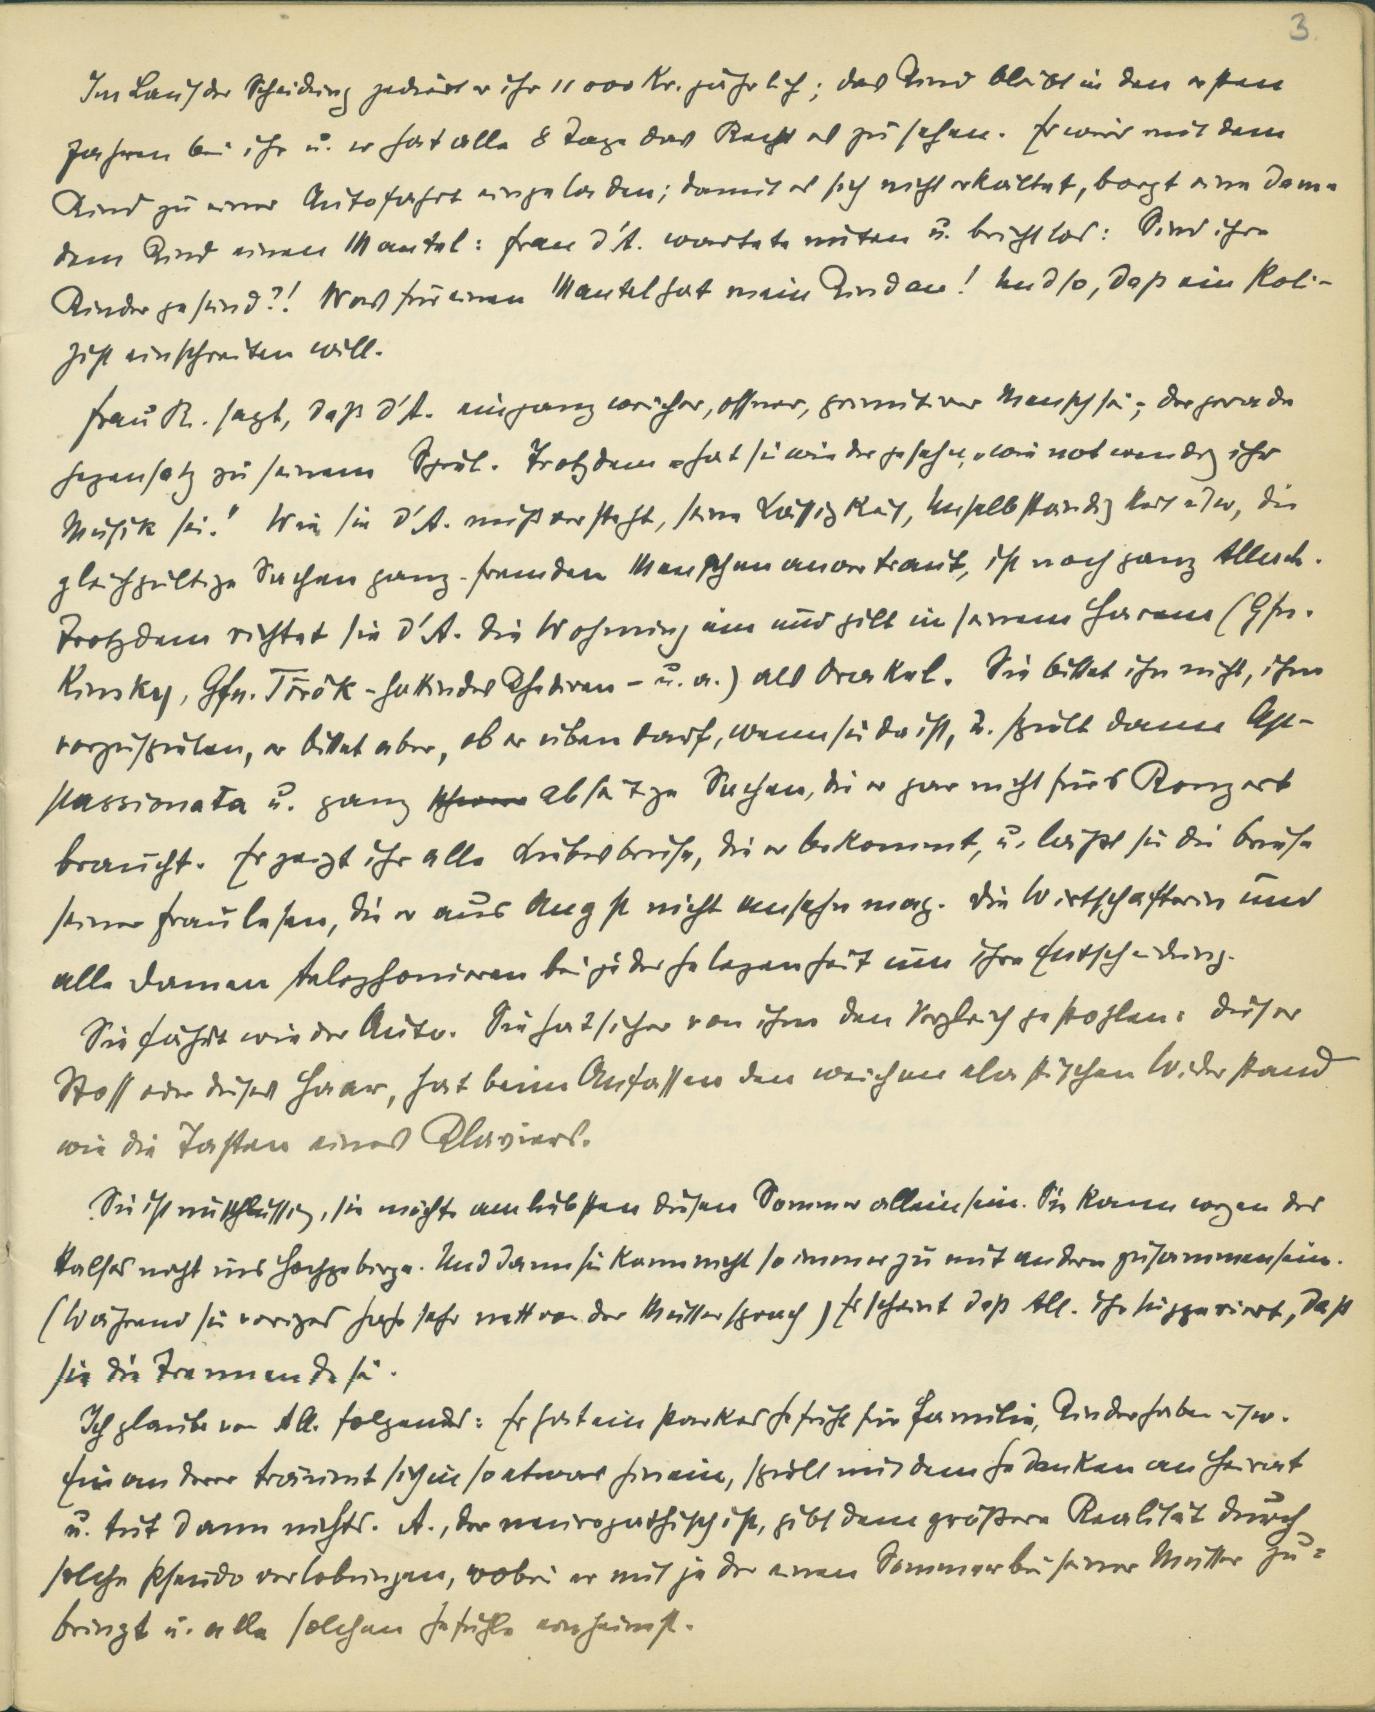 3.
Im Lauf der Scheidung zediert er ihr 11 000 Kr. jährlich; das Kind bleibt in den ersten
Jahren bei ihr u. er hat alle 8 Tage das Recht es zu sehen. Er wird mit dem
Kind zu einer Autofahrt eingeladen; damit es sich nicht erkältet, borgt eine Dame
dem Kind einen Mantel: Frau d'A. wartete unten u. bricht los: Sind ihre
Kinder gesund?! Was für einen Mantel hat mein Kind an! Und so, daß ein Poli-
zist einschreiten will.
Frau R. sagt, daß d'A. ein ganz weicher, offner, primitiver Mensch sei; der gerade
Gegensatz zu seinem Spiel. Trotzdem „hat sie wieder gesehn, wie notwendig ihr
Musik sei." Wie sie d'A. mißversteht, seine Lässigkeit, Unselbständigkeit usw, die
gleichgültige Sachen ganz fremden Menschen anvertraut, ist noch ganz Allesch.
Trotzdem richtet sie d'A. die Wohnung ein und gilt in seinem Harem (Gfn.
Kinsky, Gfn. Török - Gattin des Khediven - u. a.) als Orakel. Sie bittet ihn nicht, ihr
vorzuspielen, er bittet aber, ob er üben darf, wenn sie da ist, u. spielt dann App-
assionata u. ganz abseitige Sachen, die er gar nicht fürs Konzert
braucht. Er zeigt ihr alle Liebesbriefe, die er bekommt, u. läßt sie die Briefe
seiner Frau lesen, die er aus Angst nicht ansehn mag. Die Wirtschafterin und
alle Damen telephonieren bei jeder Gelegenheit um ihre Entscheidung.
Sie fährt wieder Auto. Sie hat sicher von ihm den Vergleich gestohlen: dieser
Stoff oder dieses Haar, hat beim Anfassen den weichen elastischen Widerstand
wie die Tasten eines Klaviers.
Sie ist unschlüssig, sie möchte am liebsten diesen Sommer allein sein. Sie kann wegen des
Halses nicht ins Hochgebirge. Und dann sie kann nicht so immerzu mit andern zusammensein.
(Während sie voriges Jahr sehr nett von der Mutter sprach) Er scheint daß All. ihr suggeriert, daß
sie die Trennende sei.
Ich glaube von All. folgendes: Er hat ein starkes Gefühl für Familie, Kinder haben usw.
Ein anderer träumt sich in so etwas hinein, spielt mit dem Gedanken an Heirat
u. tut dann nichts. A., der neuropathisch ist, gibt dem größere Realität durch
solche Pseudoverlobungen, wobei er mit jeder einen Sommer bei seiner Mutter zu=
bringt u. alle solchen Gefühle einheimst.